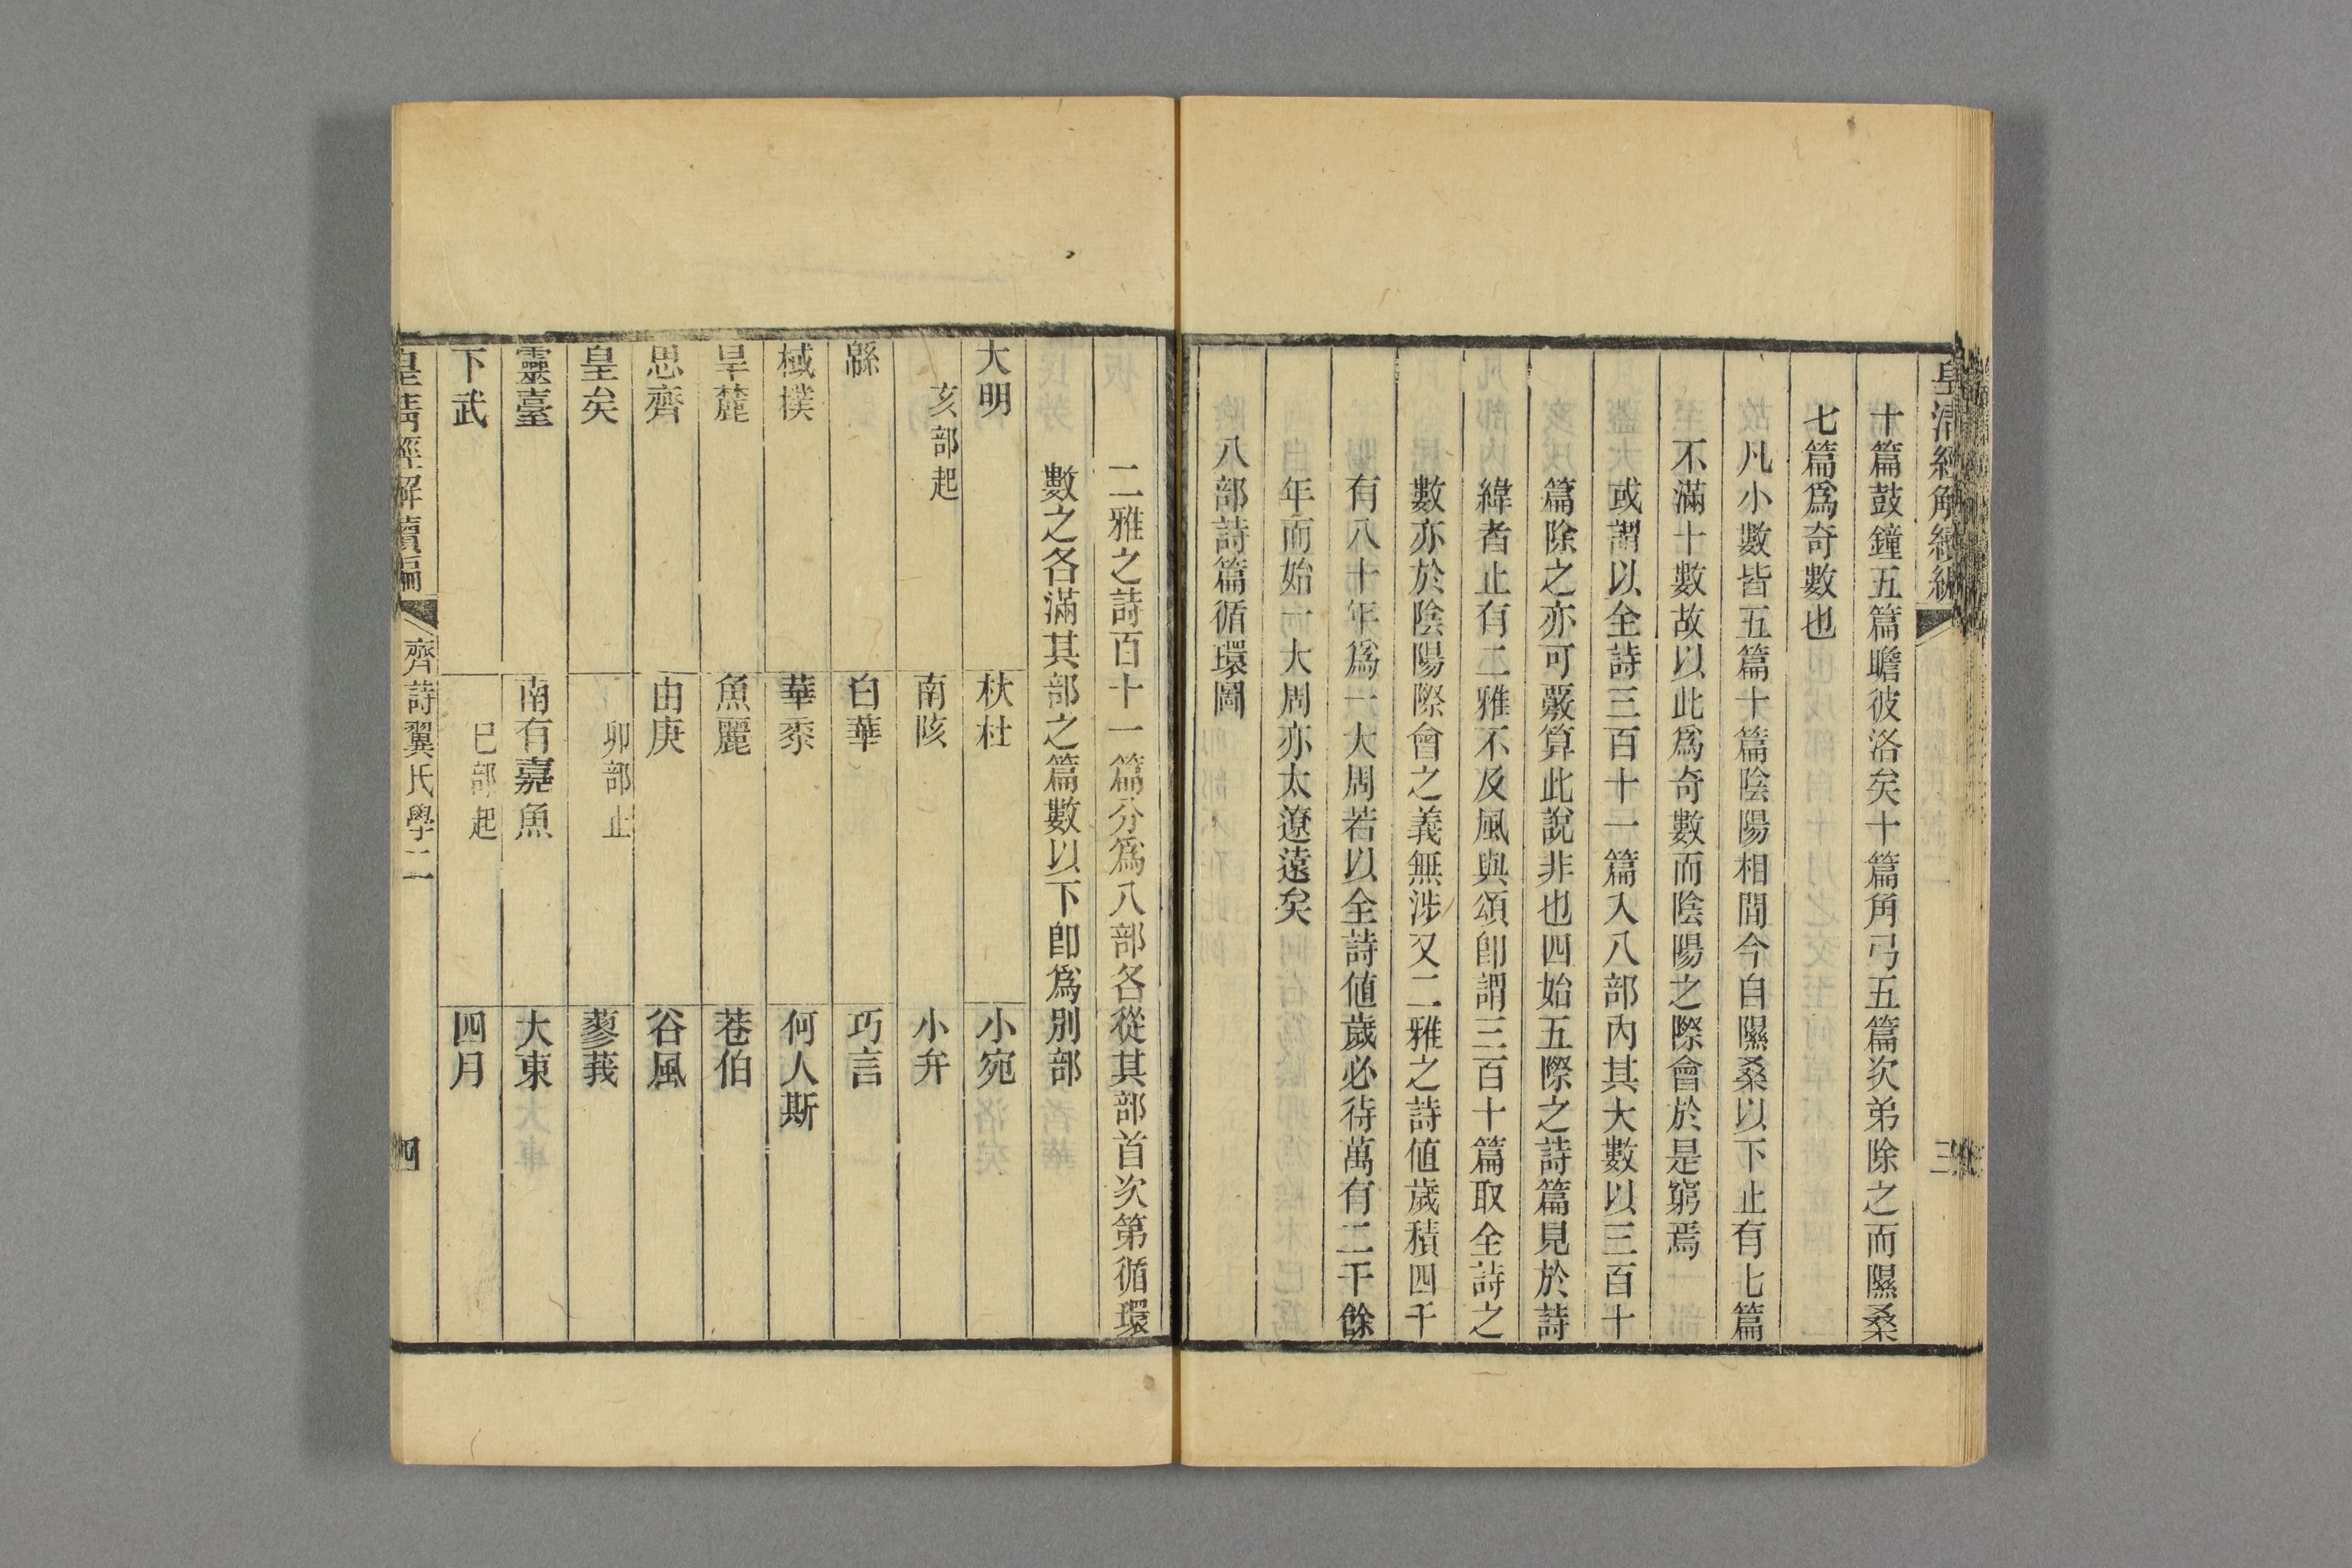 皇清經解續編
三
十篇鼓鐘五篇瞻彼洛矣十篇角弓五篇次弟除之而隰桑
七篇爲奇數也
凡小數皆五篇十篇陰陽相間今自隰桑以下止有七篇
不滿十數故以此爲奇數而陰陽之際會於是窮焉
或謂以全詩三百十一篇入八部內其大數以三百十
篇除之亦可覈算此說非也四始五際之詩篇見於詩
緯者止有二雅不及風與頌卽謂三百十篇取全詩之
數亦於陰陽際會之義無涉又二雅之詩値歲積四千
有八十年爲一大周若以全詩値歲必待萬有二千餘
年而始一大周亦太遼遠矣
八部詩篇循環圖
二雅之詩百十一篇分爲八部各從其部首次第循環
數之各滿其部之篇數以下卽爲別部
大明
杕杜
小宛
亥部起
南陔
小弁
緜
白華
巧言
棫樸
華黍
何人斯
旱麓
魚麗
巷伯
思齊
由庚
谷風
皇矣
卯部止
蓼莪
靈臺
南有嘉魚
大東
下武
巳部起
四月
皇淸經解續編
齊詩翼氏學二
四